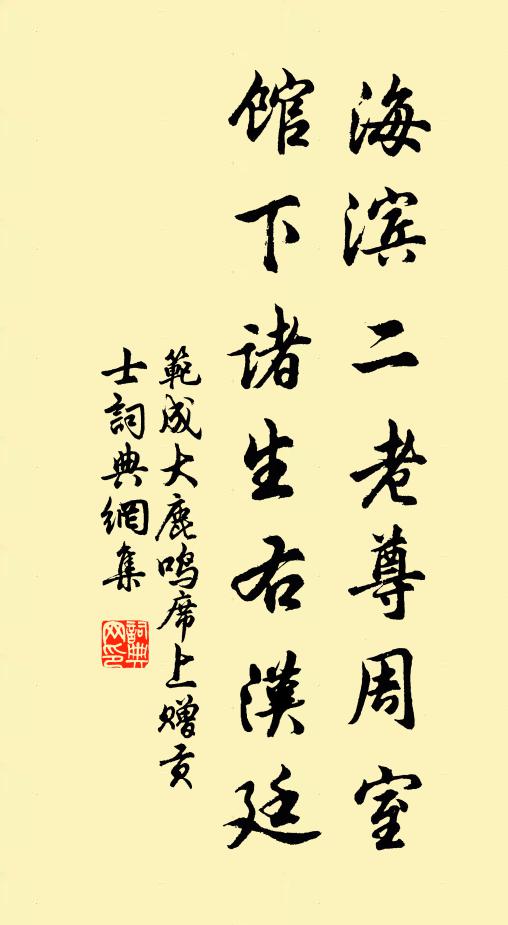 海滨二老尊周室
馆下诸生右汉廷
範成大鹿鸣席上赠贡
士詞典網集
詞典网印